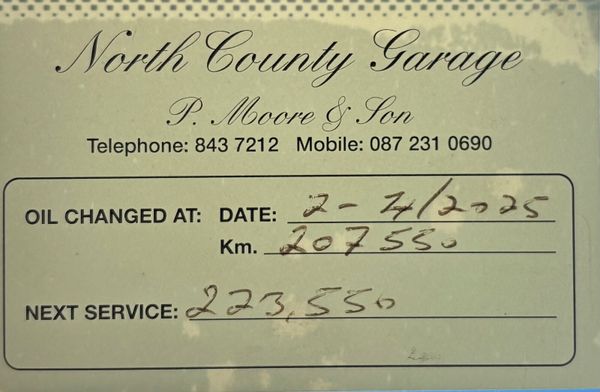 North County Garage
P. Moore & Son
Telephone: 843 7212 Mobile: 087 231 0690
OIL CHANGED AT: DATE: 2-4/2025
Km. 207550
NEXT SERVICE: 223,550